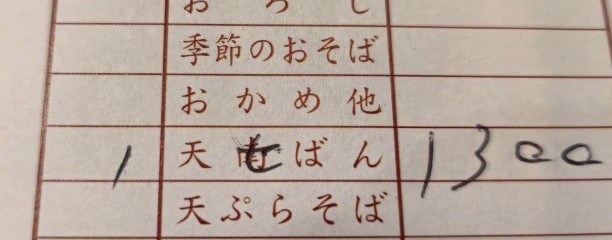 おろし
季節のおそば
おかめ他
1 天南ばん 1300
天ぷらそば